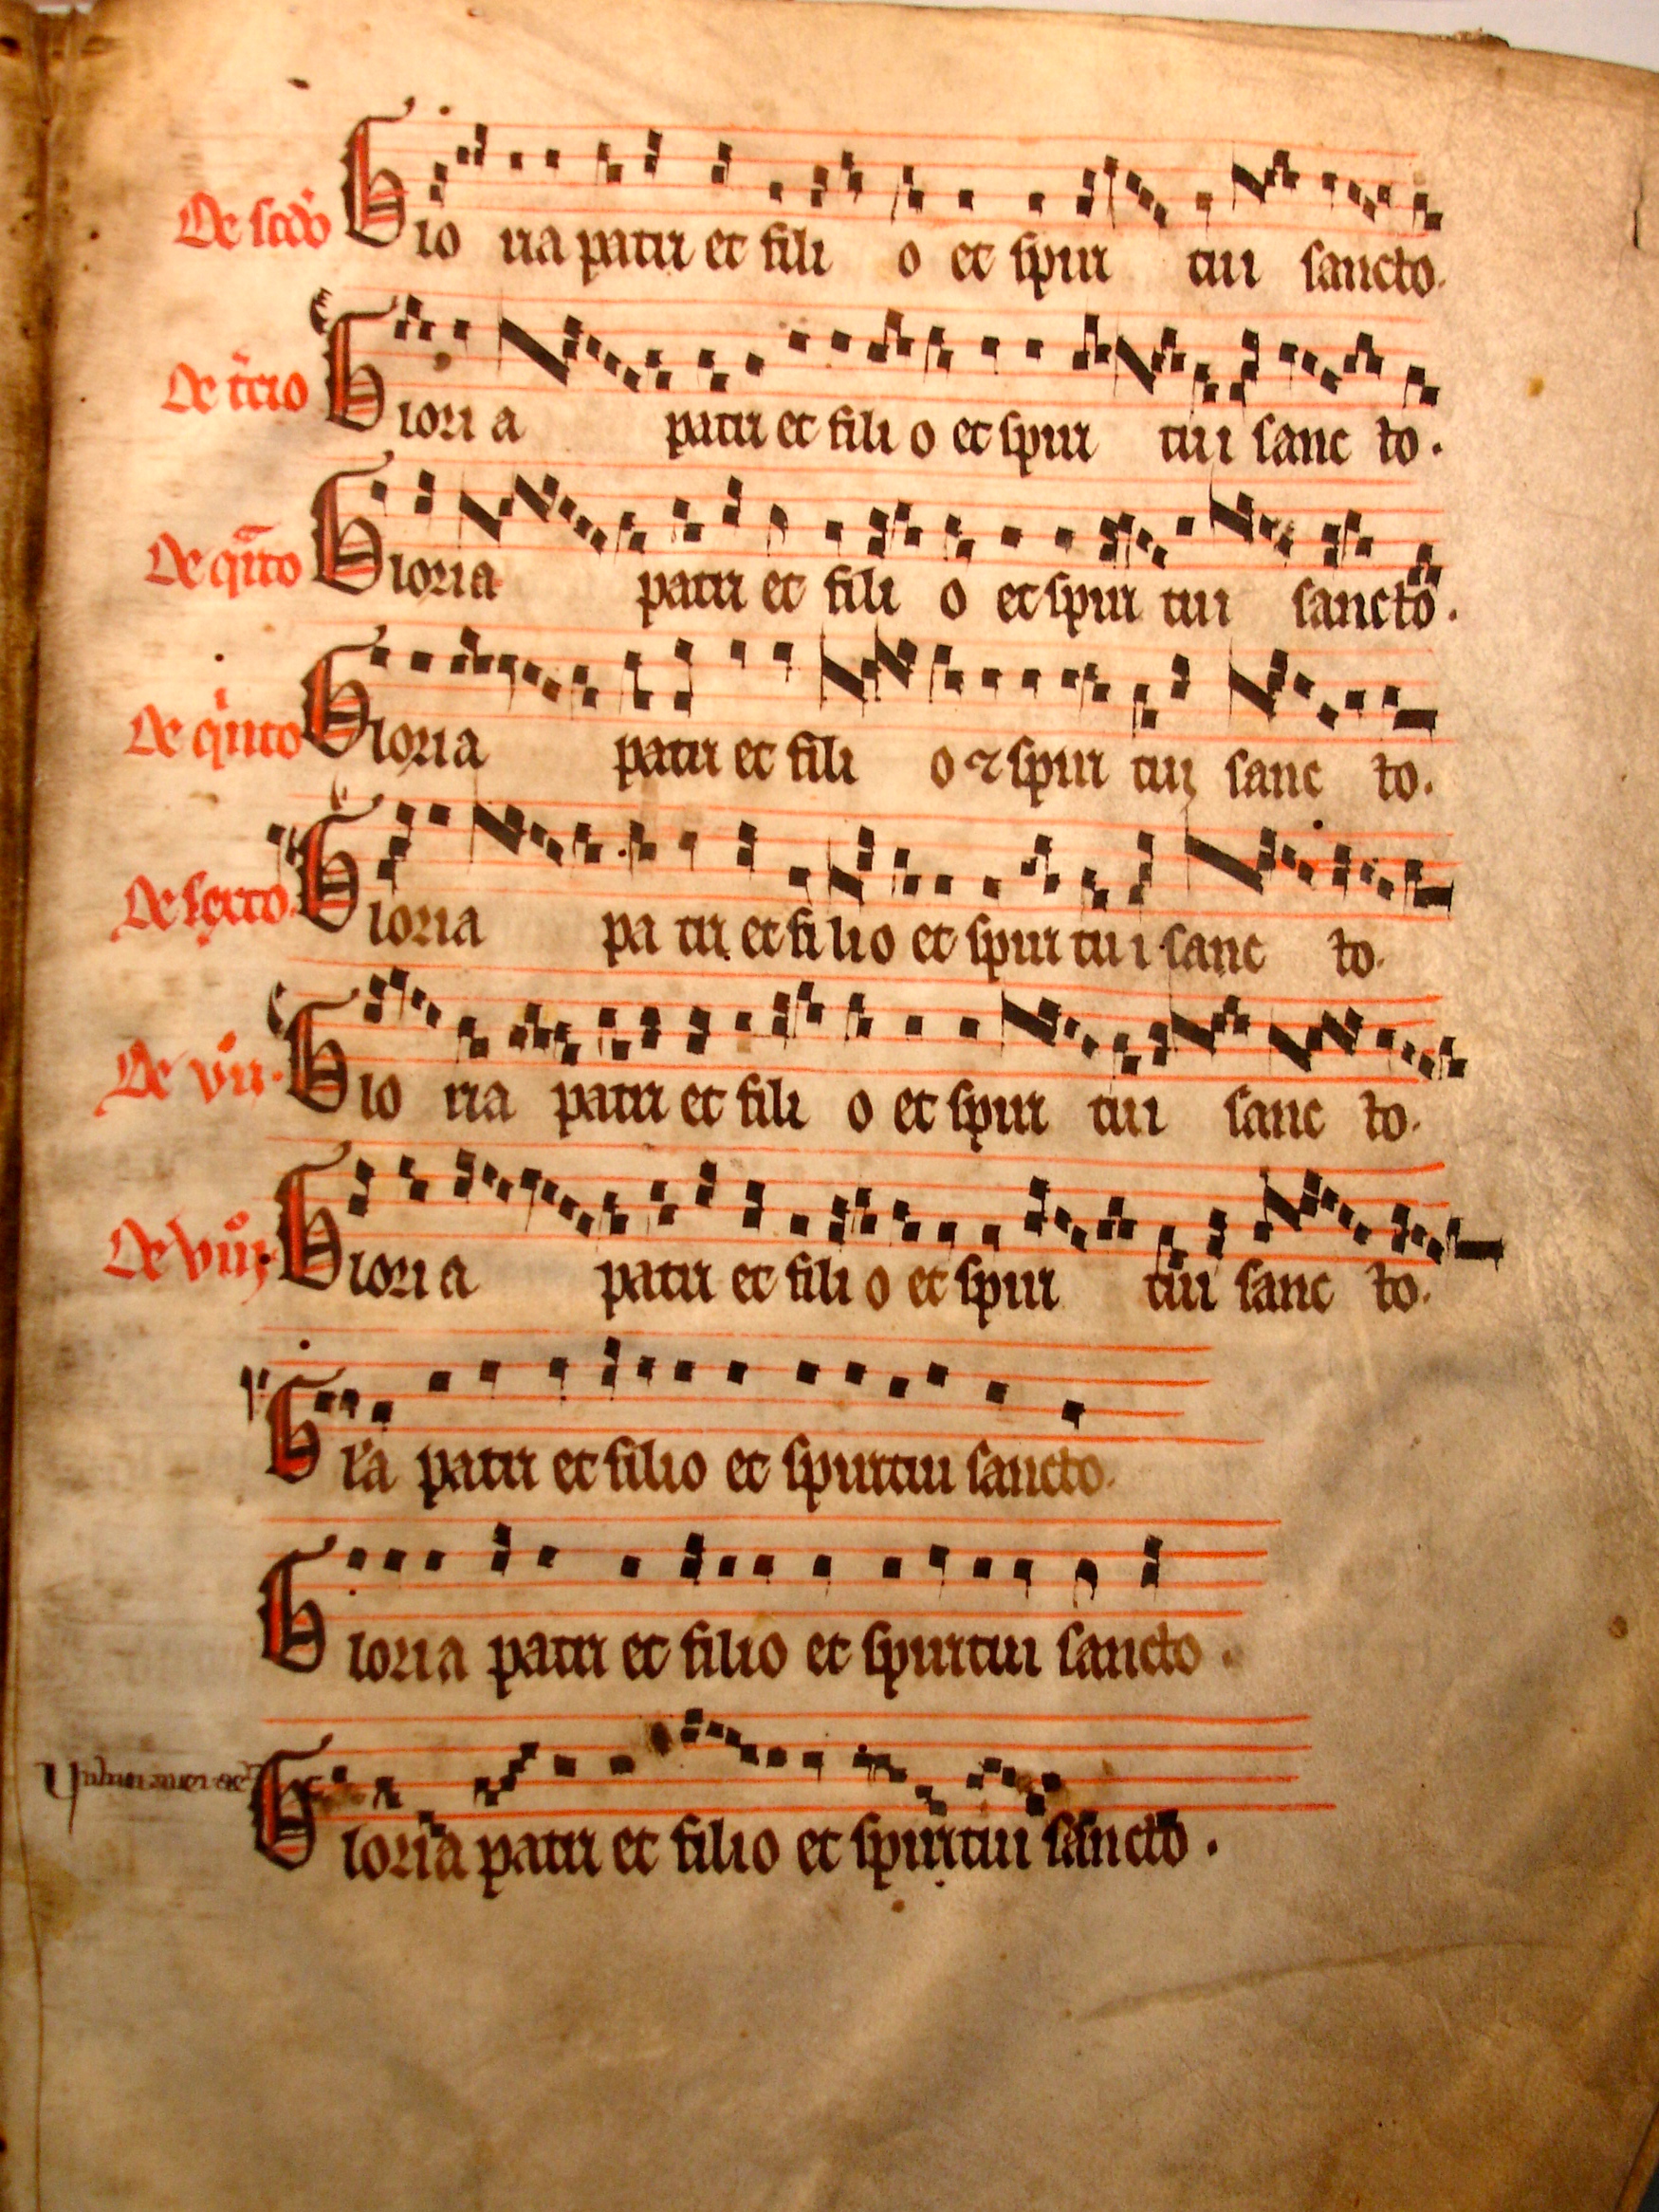 De scdo Glo ria patri et fili o et spiri tui sancto.
De tcio Glori a patri et fili o et spiri tui sanc to.
De qrto Gloria patri et fili o et spiri tui sancto.
De qinto Gloria patri et fili o ⁊ spiri tui sanc to.
De sexto. Gloria pa tri et fi lio et spiri tu i sanc to.
De vii. Glo ria patri et fili o et spiri tui sanc to.
De viii Glori a patri et fili o et spiri tui sanc to.
Gl'a patri et filio et spiritui sancto.
Gloria patri et filio et spiritui sancto.
Gloria patri et filio et spiritui sancto.